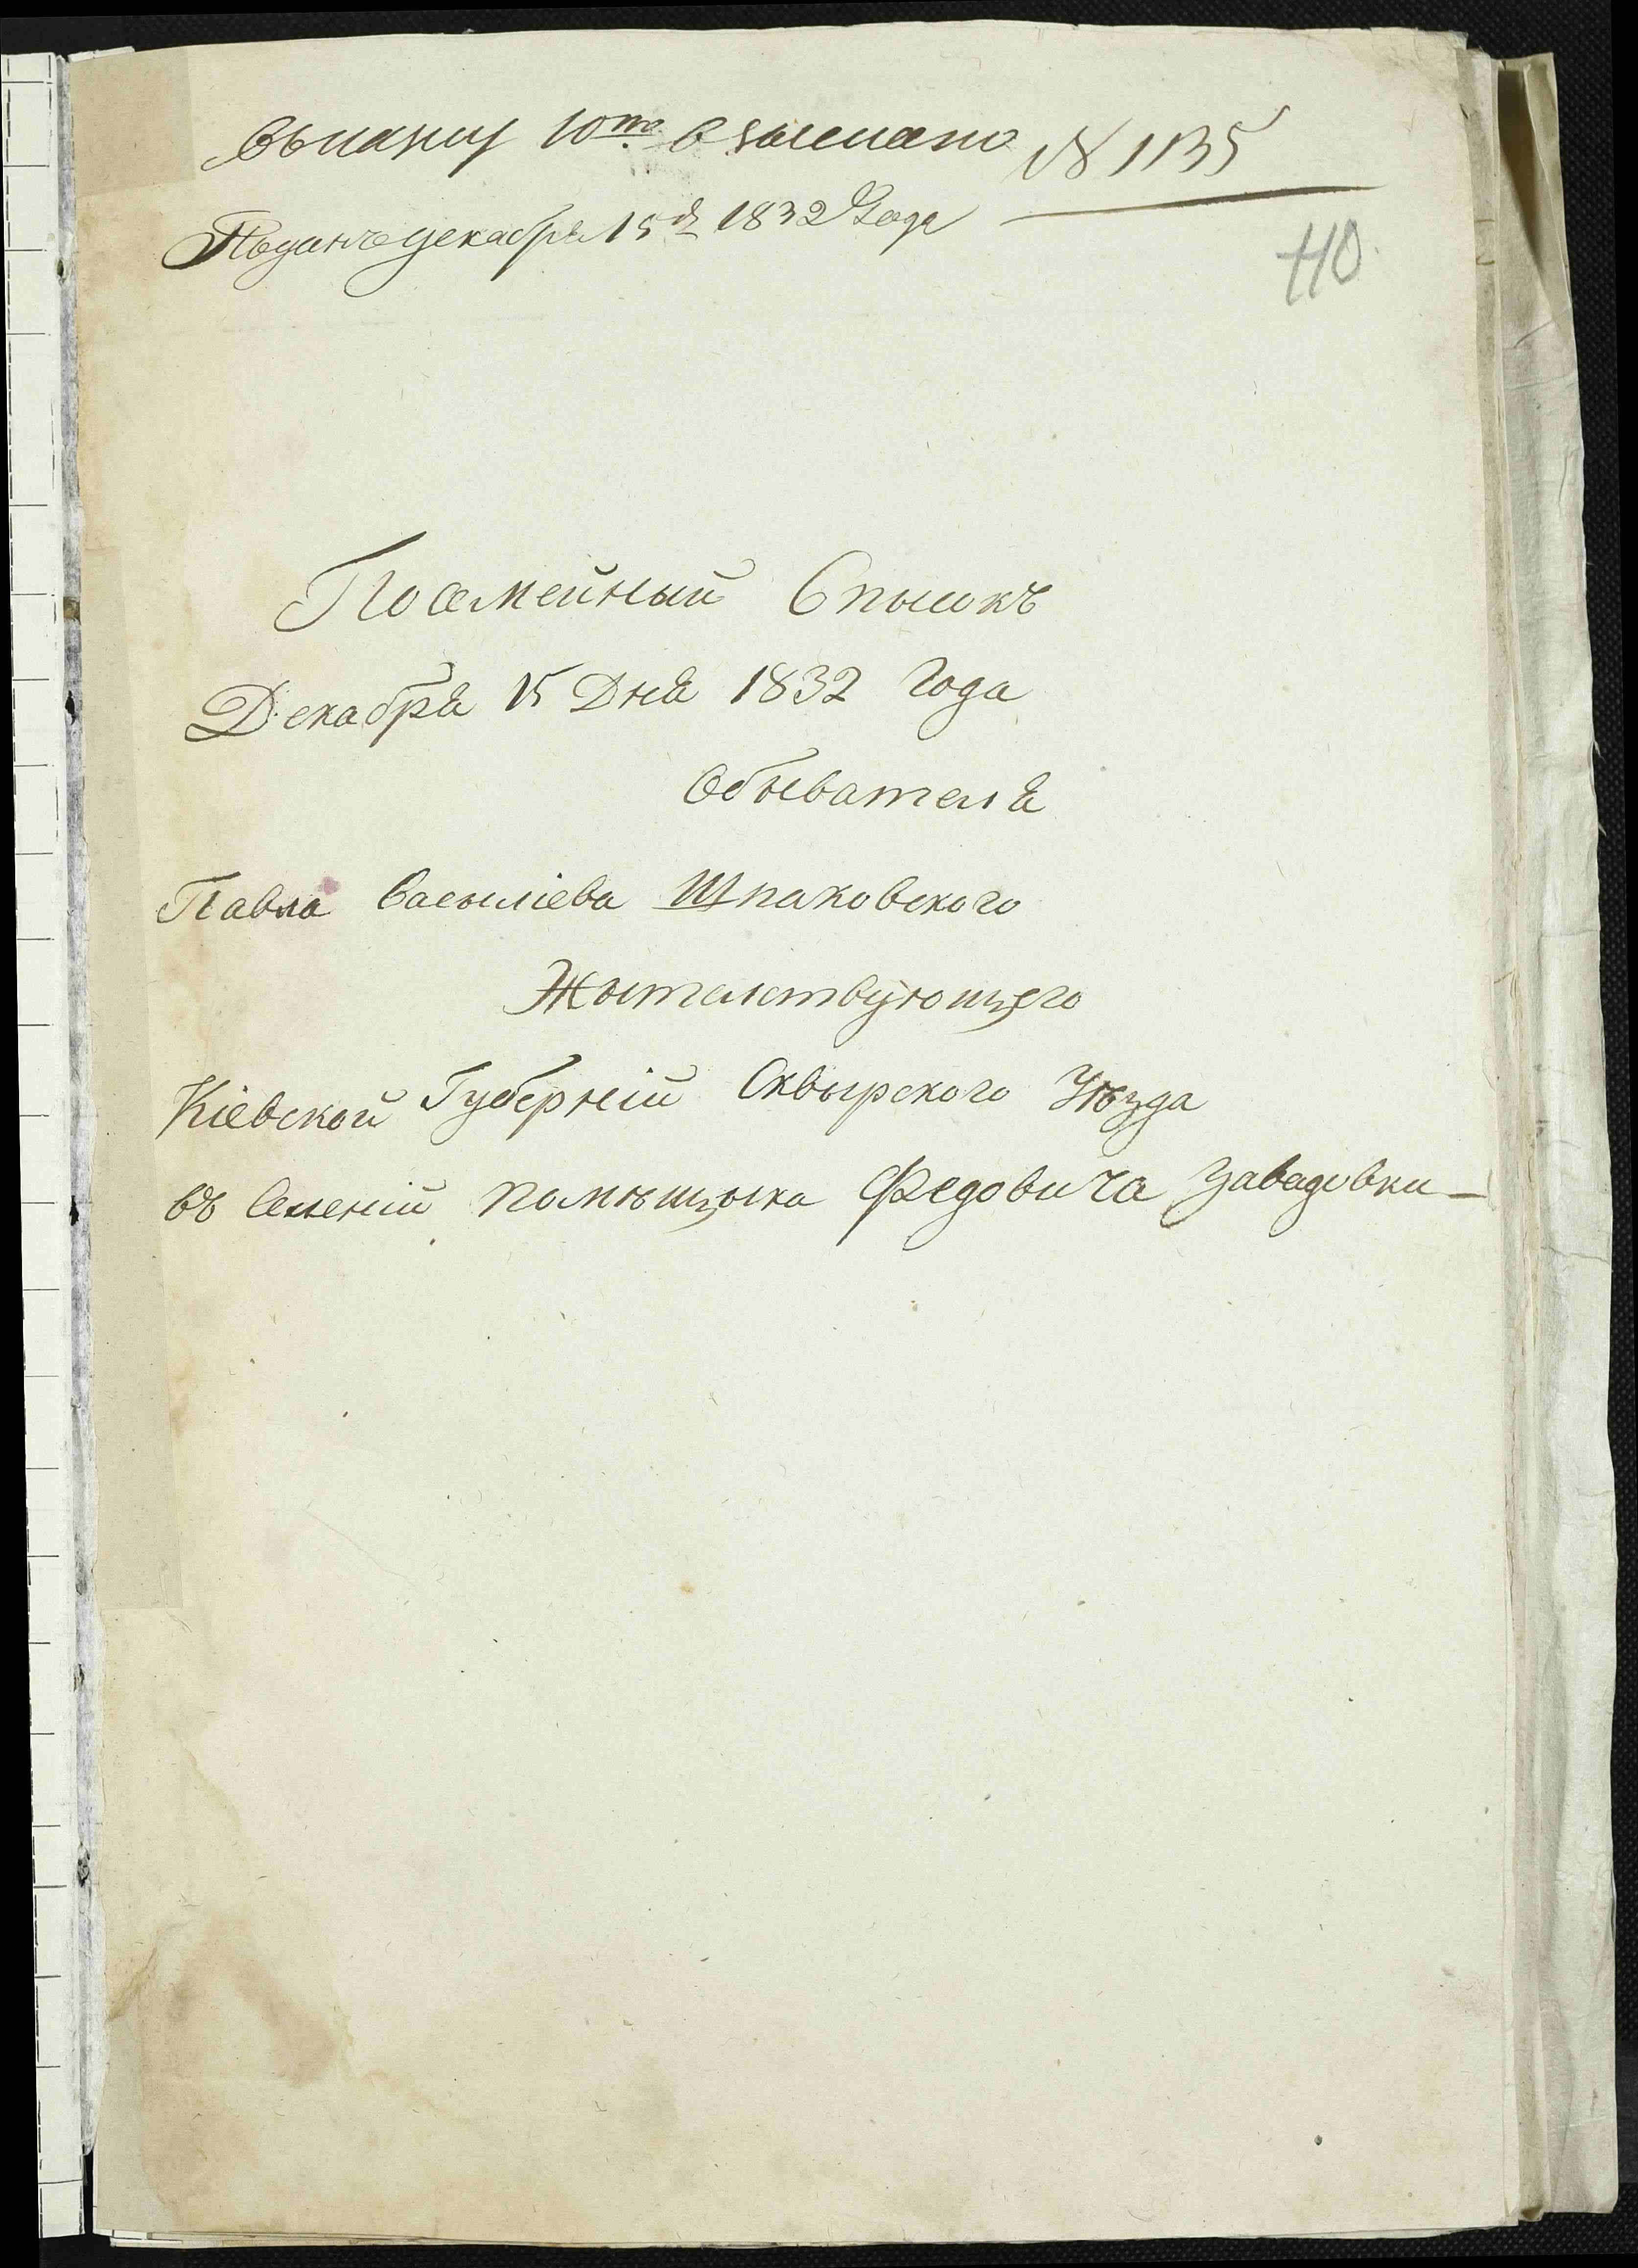 въ книгу 10то взыскано № 1135
Поданъ декабря 15 д 1832 Года
110
Посемейный Спысокъ
Декабря 15 Дня 1832 Года
Обывателя
Павла Васыліева Шпаковского
Жытелствующего
Кіевской Губерній Сквырского Уѣзда
въ Селеній помѣщыка Федовича Завадовки